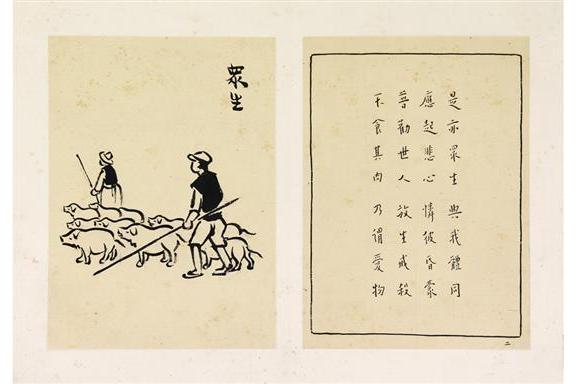 眾生
是亦眾生 與我體同
應起悲心 憐彼昏蒙
普勸世人 放生戒殺
不食其肉 乃謂愛物
二